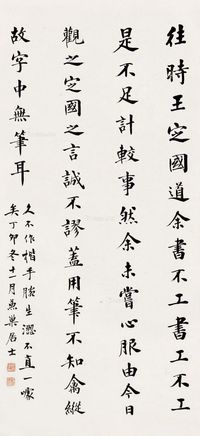 往時王定國道余書不工書工不工
是不足計較事然余未嘗心服由今日
觀之定國之言誠不謬蓋用筆不知禽縱
故字中無筆耳
久不作楷手腕生澀不直一噱
矣丁卯冬十一月燕巢居士